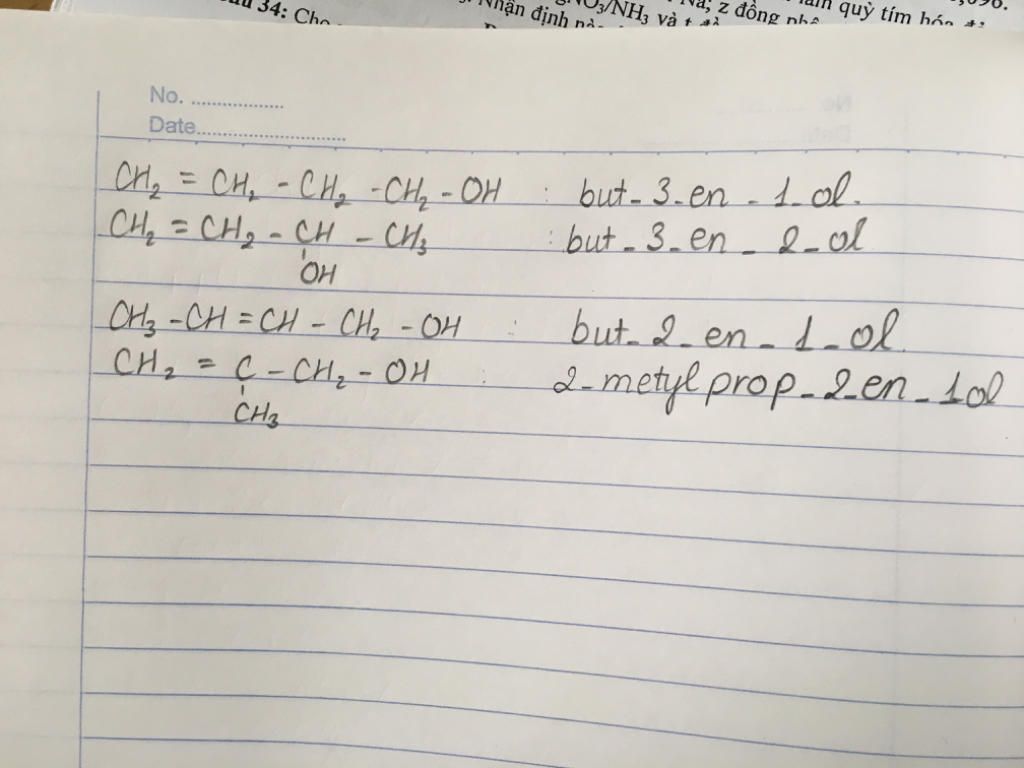 34: Cho
Nhận định
NO₃/NH₃ và t
Na; z đồng
làm quỳ tím hóa
No. ..................
Date..............................
CH₂ = CH₂ - CH₂ - CH₂ - OH : but - 3 - en - 1 - ol.
CH₂ = CH₂ - CH - CH₃ : but - 3 - en - 2 - ol
OH
CH₃ - CH = CH - CH₂ - OH : but - 2 - en - 1 - ol.
CH₂ = C - CH₂ - OH : 2 - metyl prop - 2 - en - 1 ol
CH₃